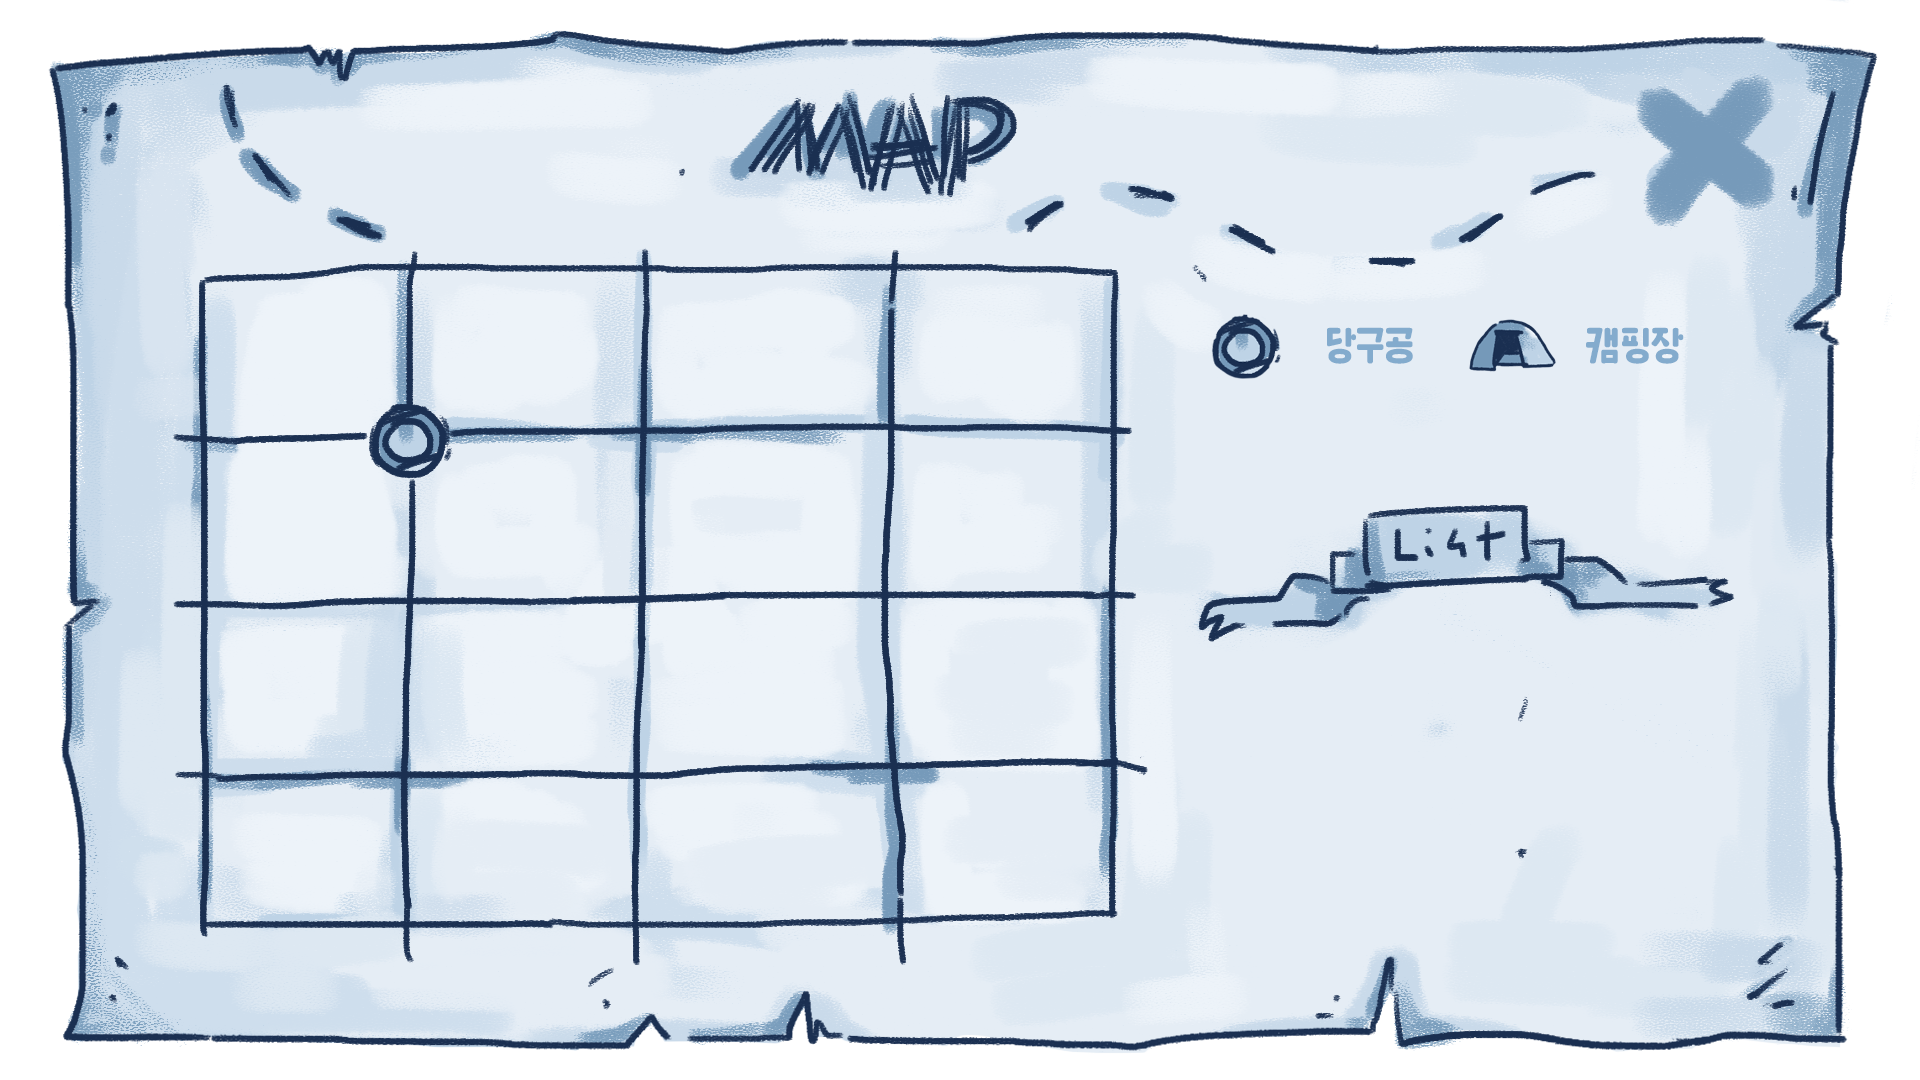 MAP
당구공 캠핑장
List